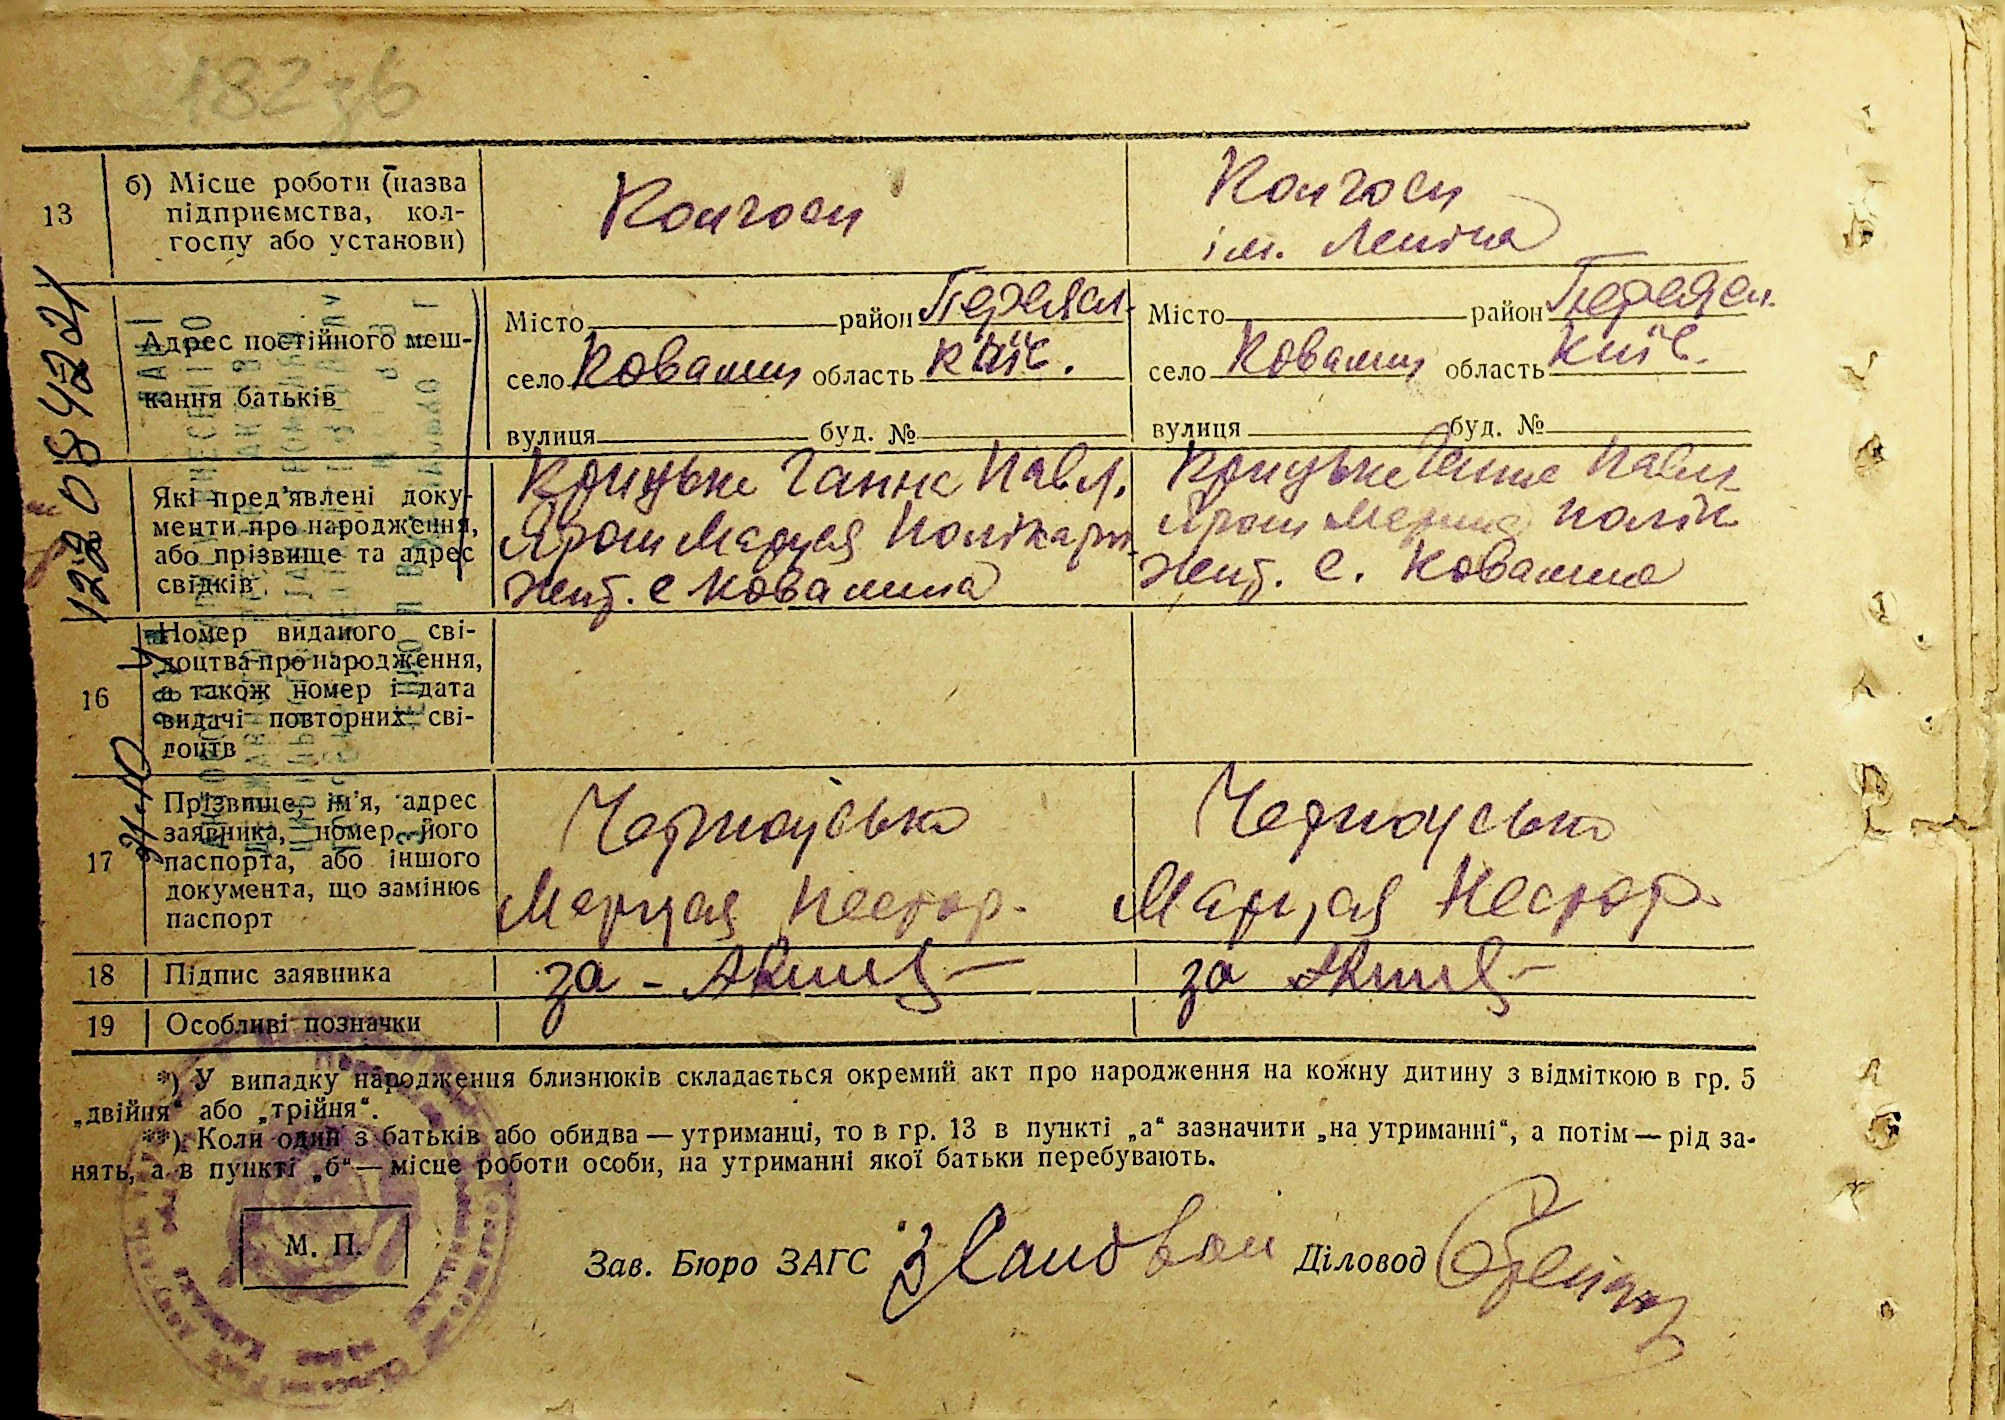 182 зв
13
б) Місце роботи (назва
підприємства, кол-
госпу або установи)
Колгосп
Колгосп
ім. Леніна
Адрес постійного меш-
кання батьків
Місто район Переясл.
село Ковалин область Київ.
вулиця буд. №
Місто район Переясл.
село Ковалин область Київ.
вулиця буд. №
Які пред'явлені доку-
менти про народження,
або прізвище та адрес
свідків
Крицька Ганна Павл.
Ярош Марія Полікарп.
жит. с Ковалина
Крицька Ганна Павл.
Ярош Марія Полік
жит. с. Ковалина
16
Номер виданого сві-
доцтва про народження,
а також номер і дата
видачі повторних сві-
доцтв
17
Прізвище, ім'я, адрес
заявника, номер його
паспорта, або іншого
документа, що замінює
паспорт
Черноусько
Марія Нестор.
Черноусько
Марія Нестор.
18
Підпис заявника
за -
за
19
Особливі позначки
*) У випадку народження близнюків складається окремий акт про народження на кожну дитину з відміткою в гр. 5
„двійня“ або „трійня“.
**) Коли один з батьків або обидва — утриманці, то в гр. 13 в пункті „а“ зазначити „на утриманні“, а потім — рід за-
нять, а в пункті „б“ — місце роботи особи, на утриманні якої батьки перебувають.
М. П.
Зав. Бюро ЗАГС
Діловод